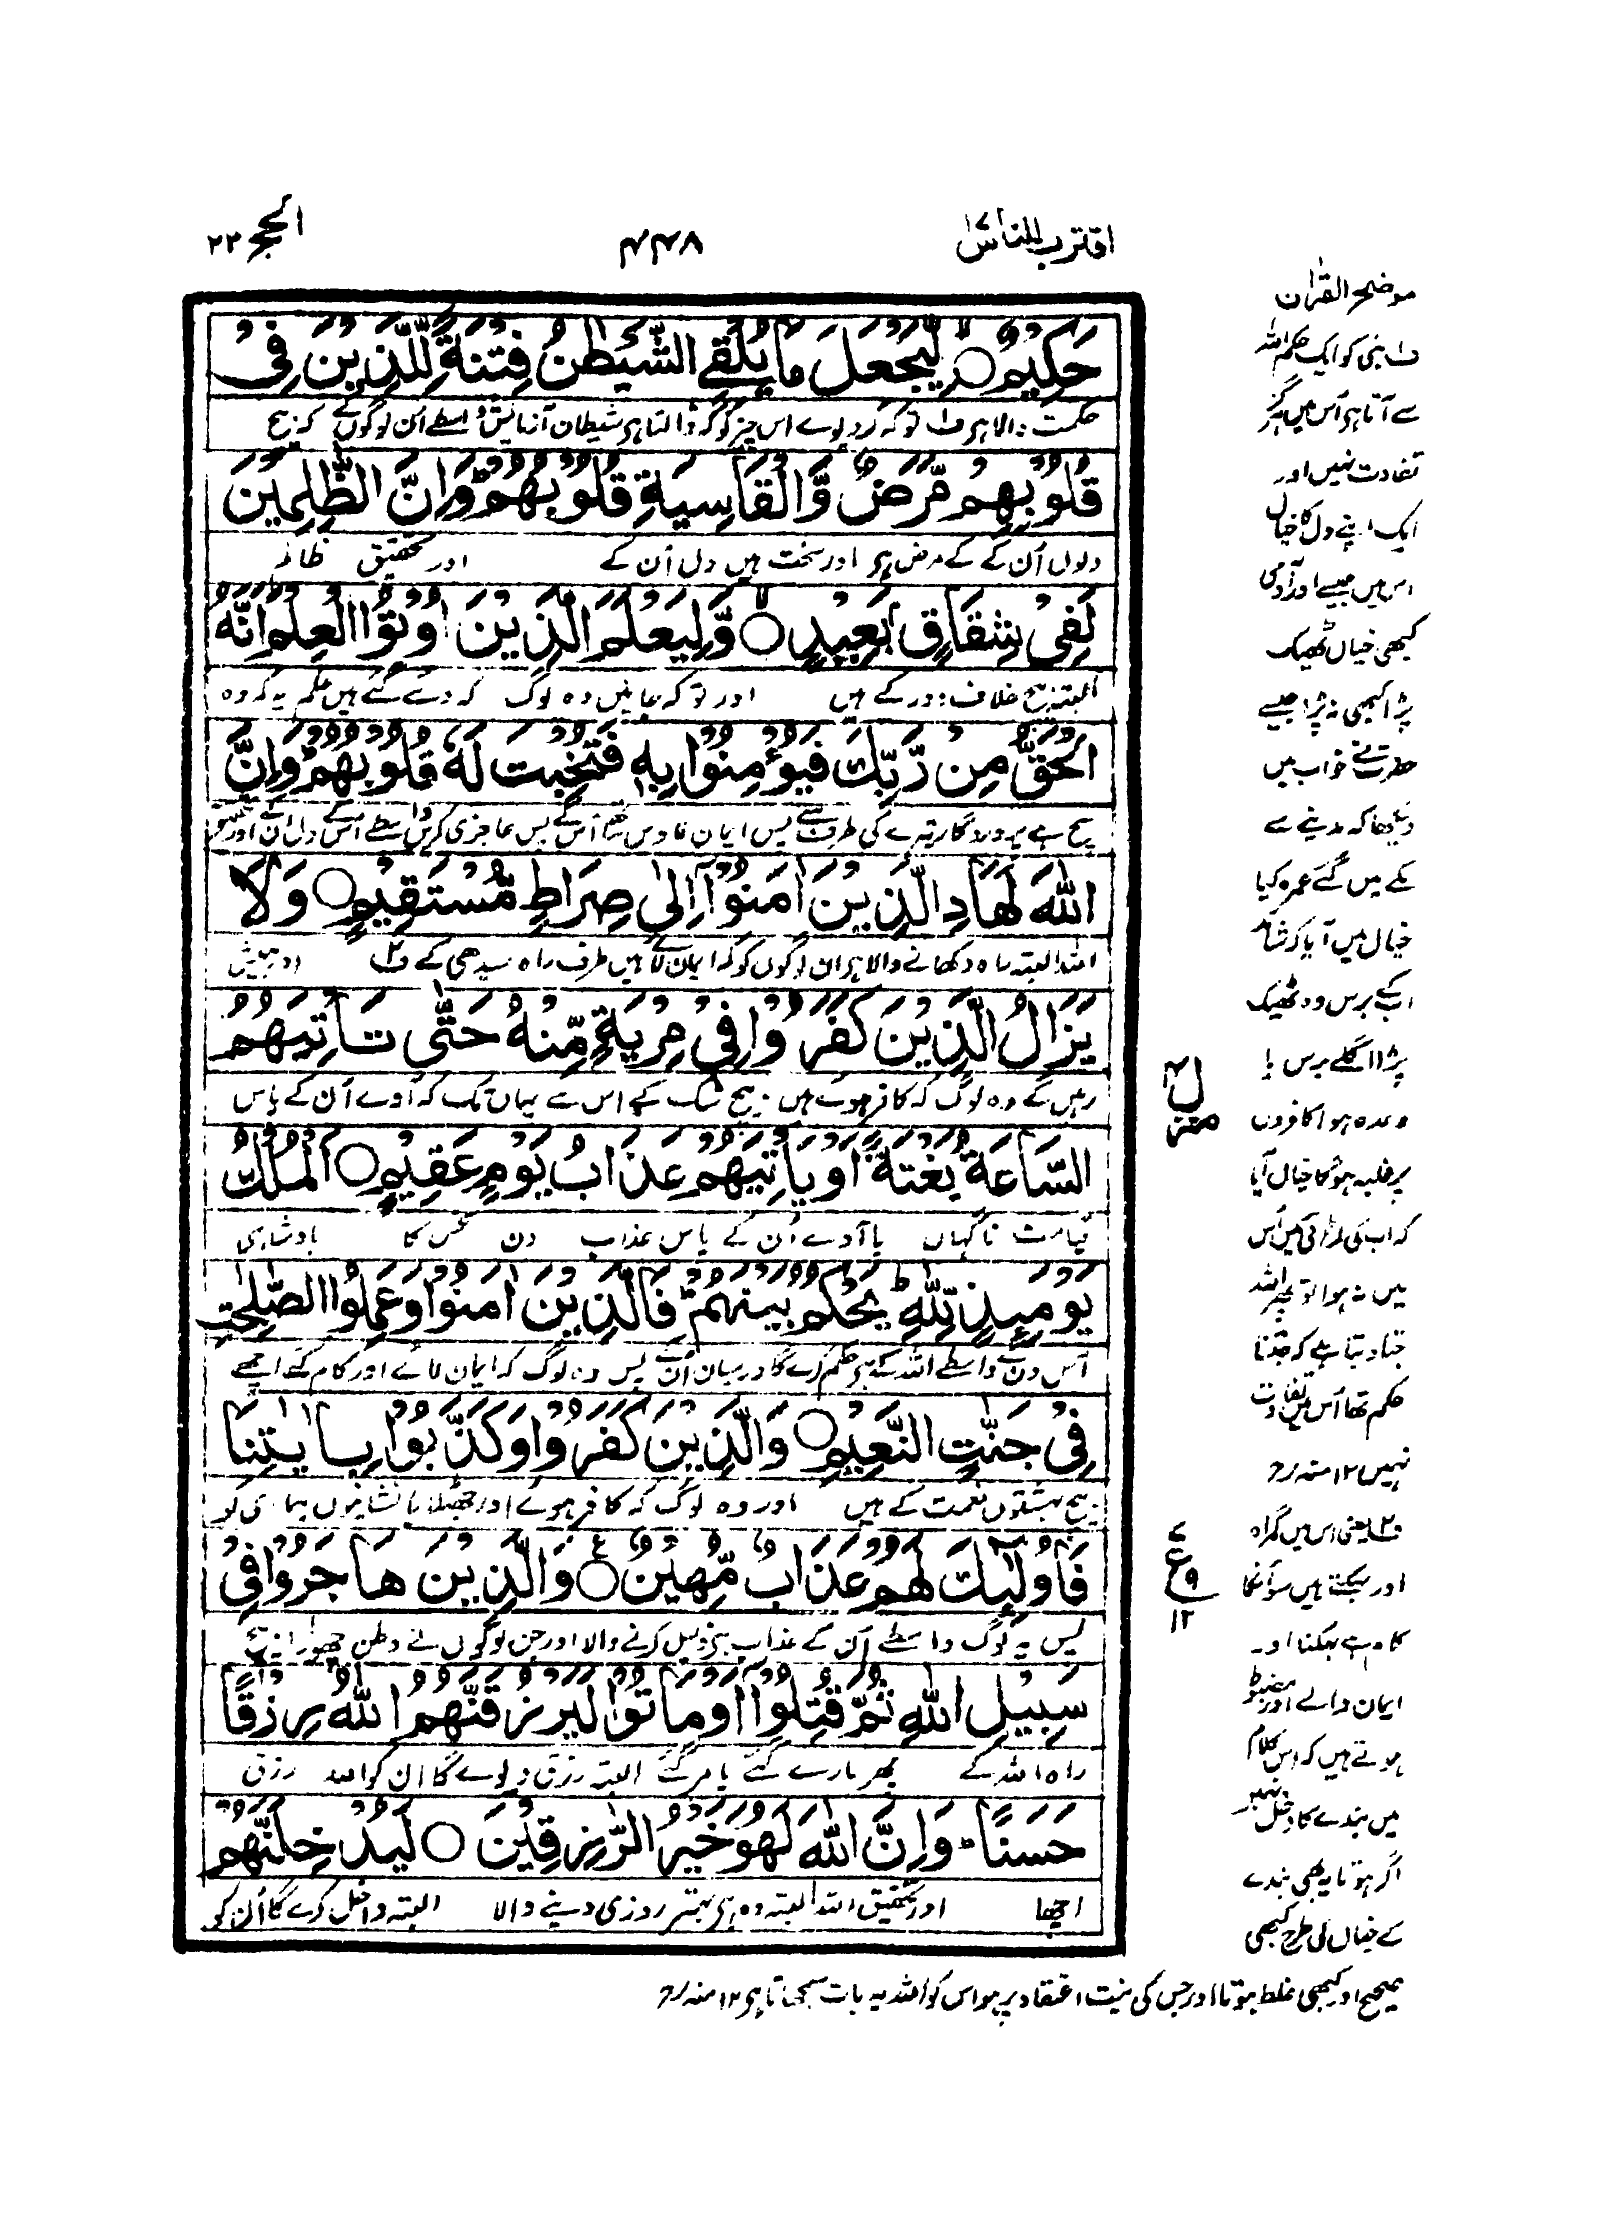 اقترب للناس ۱۷
۴۴۸
الحج ۲۲
حَكِيْمٌ ○ لِّيَجْعَلَ مَا يُلْقِي الشَّيْطٰنُ فِتْنَةً لِّلَّذِيْنَ فِيْ
حکمت والا ہر ف۱ تو کہ کردیوے اس چیز کو کہ ڈالتا ہر شیطان آزمایش واسطے اُن لوگوں کے کہ بیچ
قُلُوْبِهِمْ مَّرَضٌ وَّالْقَاسِيَةِ قُلُوْبُهُمْ ۗ وَاِنَّ الظّٰلِمِيْنَ
دلوں اُن کے کے مرض ہر اور سخت ہیں دل اُن کے اور تحقیق ظالم
لَفِيْ شِقَاقٍۢ بَعِيْدٍ ○ وَّلِيَعْلَمَ الَّذِيْنَ اُوْتُوا الْعِلْمَ اَنَّهُ
البتہ بیچ خلاف دور کے ہیں اور تو کہ جانیں وہ لوگ کہ دئے گئے ہیں علم یہ کہ وہ
الْحَقُّ مِنْ رَّبِّكَ فَيُؤْمِنُوْا بِهٖ فَتُخْبِتَ لَهٗ قُلُوْبُهُمْ ۗ وَاِنَّ
سچ ہے پروردگار تیرے کی طرف سے پس ایمان لاویں ساتھ اُس کے پس عاجزی کریں واسطے اُس کے دل اُن کے اور تحقیق
اللّٰهَ لَهَادِ الَّذِيْنَ اٰمَنُوْٓا اِلٰى صِرَاطٍ مُّسْتَقِيْمٍ ○ وَلَا
اللہ البتہ راہ دکھانے والا ہر ان لوگوں کو کہ ایمان لائے ہیں طرف راہ سیدھی کے ف۲ اور ہمیش
يَزَالُ الَّذِيْنَ كَفَرُوْا فِيْ مِرْيَةٍ مِّنْهُ حَتّٰى تَاْتِيَهُمُ
رہیں گے وہ لوگ کہ کافر ہوئے ہیں بیچ شک کے اس سے یہاں تک کہ آوے اُن کے پاس
السَّاعَةُ بَغْتَةً اَوْ يَاْتِيَهُمْ عَذَابُ يَوْمٍ عَقِيْمٍ ○ اَلْمُلْكُ
قیامت ناگہاں یا آوے اُن کے پاس عذاب دن نحس کا بادشاہی
يَوْمَىِٕذٍ لِّلّٰهِ ۗ يَحْكُمُ بَيْنَهُمْ ۗ فَالَّذِيْنَ اٰمَنُوْا وَعَمِلُوا الصّٰلِحٰتِ
اُس دن کے واسطے اللہ کے ہر حکم کرے گا درمیان اُن کے پس وہ لوگ کہ ایمان لائے اور کام کئے اچھے
فِيْ جَنّٰتِ النَّعِيْمِ ○ وَالَّذِيْنَ كَفَرُوْا وَكَذَّبُوْا بِاٰيٰتِنَا
بیچ بہشتوں نعمت کے ہیں اور وہ لوگ کہ کافر ہوئے اور جھٹلایا نشانیوں ہماری کو
فَاُولٰٓىِٕكَ لَهُمْ عَذَابٌ مُّهِيْنٌ ○ وَالَّذِيْنَ هَاجَرُوْا فِيْ
پس یہ لوگ واسطے اُن کے عذاب ہر ذلیل کرنے والا اور جن لوگوں نے وطن چھوڑا بیچ
سَبِيْلِ اللّٰهِ ثُمَّ قُتِلُوْٓا اَوْ مَاتُوْا لَيَرْزُقَنَّهُمُ اللّٰهُ رِزْقًا
راہ اللہ کے پھر مارے گئے یا مرگئے البتہ رزق دیوے گا ان کو اللہ رزق
حَسَنًا ۗ وَاِنَّ اللّٰهَ لَهُوَ خَيْرُ الرّٰزِقِيْنَ ○ لَيُدْخِلَنَّهُمْ
اچھا اور تحقیق اللہ البتہ وہ ہر بہتر روزی دینے والا البتہ داخل کرے گا اُن کو
موضح القرآن
ف۱ نبی کو ایک حکم اللہ
سے آتا ہر اُس میں ہرگز
تفاوت نہیں اور
ایک اپنے دل کا خیال
اس میں جیسے اور آدمی
کبھی خیال ٹھیک
پڑا کبھی نہ پڑا جیسے
حضرت نے خواب میں
دیکھا کہ مدینے سے
مکے میں گئے عمرہ کیا
خیال میں آیا کہ شاید
اب کے برس وہ ٹھیک
پڑا اگلے برس یا
وعدہ ہوا کافروں
پر غلبہ ہوگا خیال آیا
کہ اب کی لڑائی میں اُس
میں نہ ہوا تو پھر اللہ
جتا دیتا ہے کہ جتنا
حکم تھا اُس میں تفاوت
نہیں ۱۲ منہ رح
ف۲ یعنی اس میں گمراہ
اور بہکتے ہیں سو اُنکا
کام ہے بہکنا اور
ایمان والے اور مضبوط
ہوتے ہیں کہ اس کلام
میں بندے کا دخل نہیں
اگر ہوتا یہ بھی بندے
کے خیال کی طرح کبھی
صحیح اور کبھی غلط ہوتا اور جس کی نیت اعتقاد پر ہو اس کو اللہ یہ بات سمجھاتا ہر ۱۲ منہ رح
منزل ۴
ع
۹
۱۲